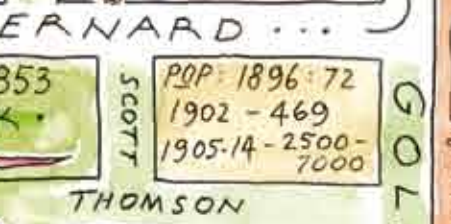 ERNARD...
853
SCOTT
POP: 1896: 72
1902 - 469
1905-14 - 2500-
7000
GOL
THOMSON